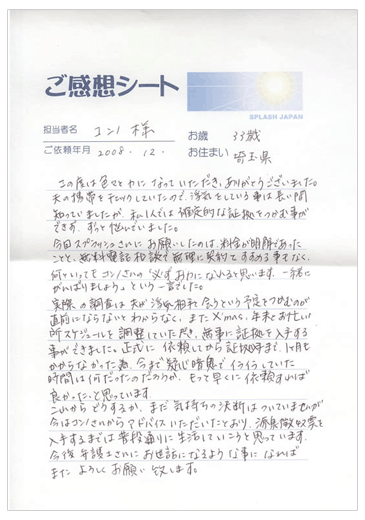 ご感想シート
SPLASH JAPAN
担当者名 コンノ 様
お歳 33歳
ご依頼年月 2008.12.
お住まい 埼玉県
この度は色々と力になっていただき、ありがとうございました。
夫の携帯をチェックしていたので、浮気をしている事は長い間
知っていましたが、私1人では確定的な証拠をつかむ事が
できず、ずっと悩んでいました。
今回スプラッシュさんにお願いしたのは、料金が明瞭であった
ことと、無料電話相談で無理に契約をすすめる事もなく、
何といってもコンノさんの「必ずお力になれると思います。一緒に
がんばりましょう」という一言でした。
実際の調査は夫が浮気相手と会うという予定をつかむのが
直前にならないとわからなく、またX'mas、年末とお忙しい
所スケジュールを調整していただき、無事に証拠を入手する
事ができました。正式に依頼してから証拠入手まで、1ヶ月も
かからなかった為、今まで疑心暗鬼でイライラしていた
時間は何だったのだろうか、もっと早くに依頼すれば
良かったと思っています。
これからどうするか、まだ気持ちの決断はついていませんが
今はコンノさんからアドバイスいただいたとおり、源泉徴収票を
入手するまでは普段通りに生活していこうと思っています。
今後弁護士さんにお世話になるような事になれば
またよろしくお願い致します。